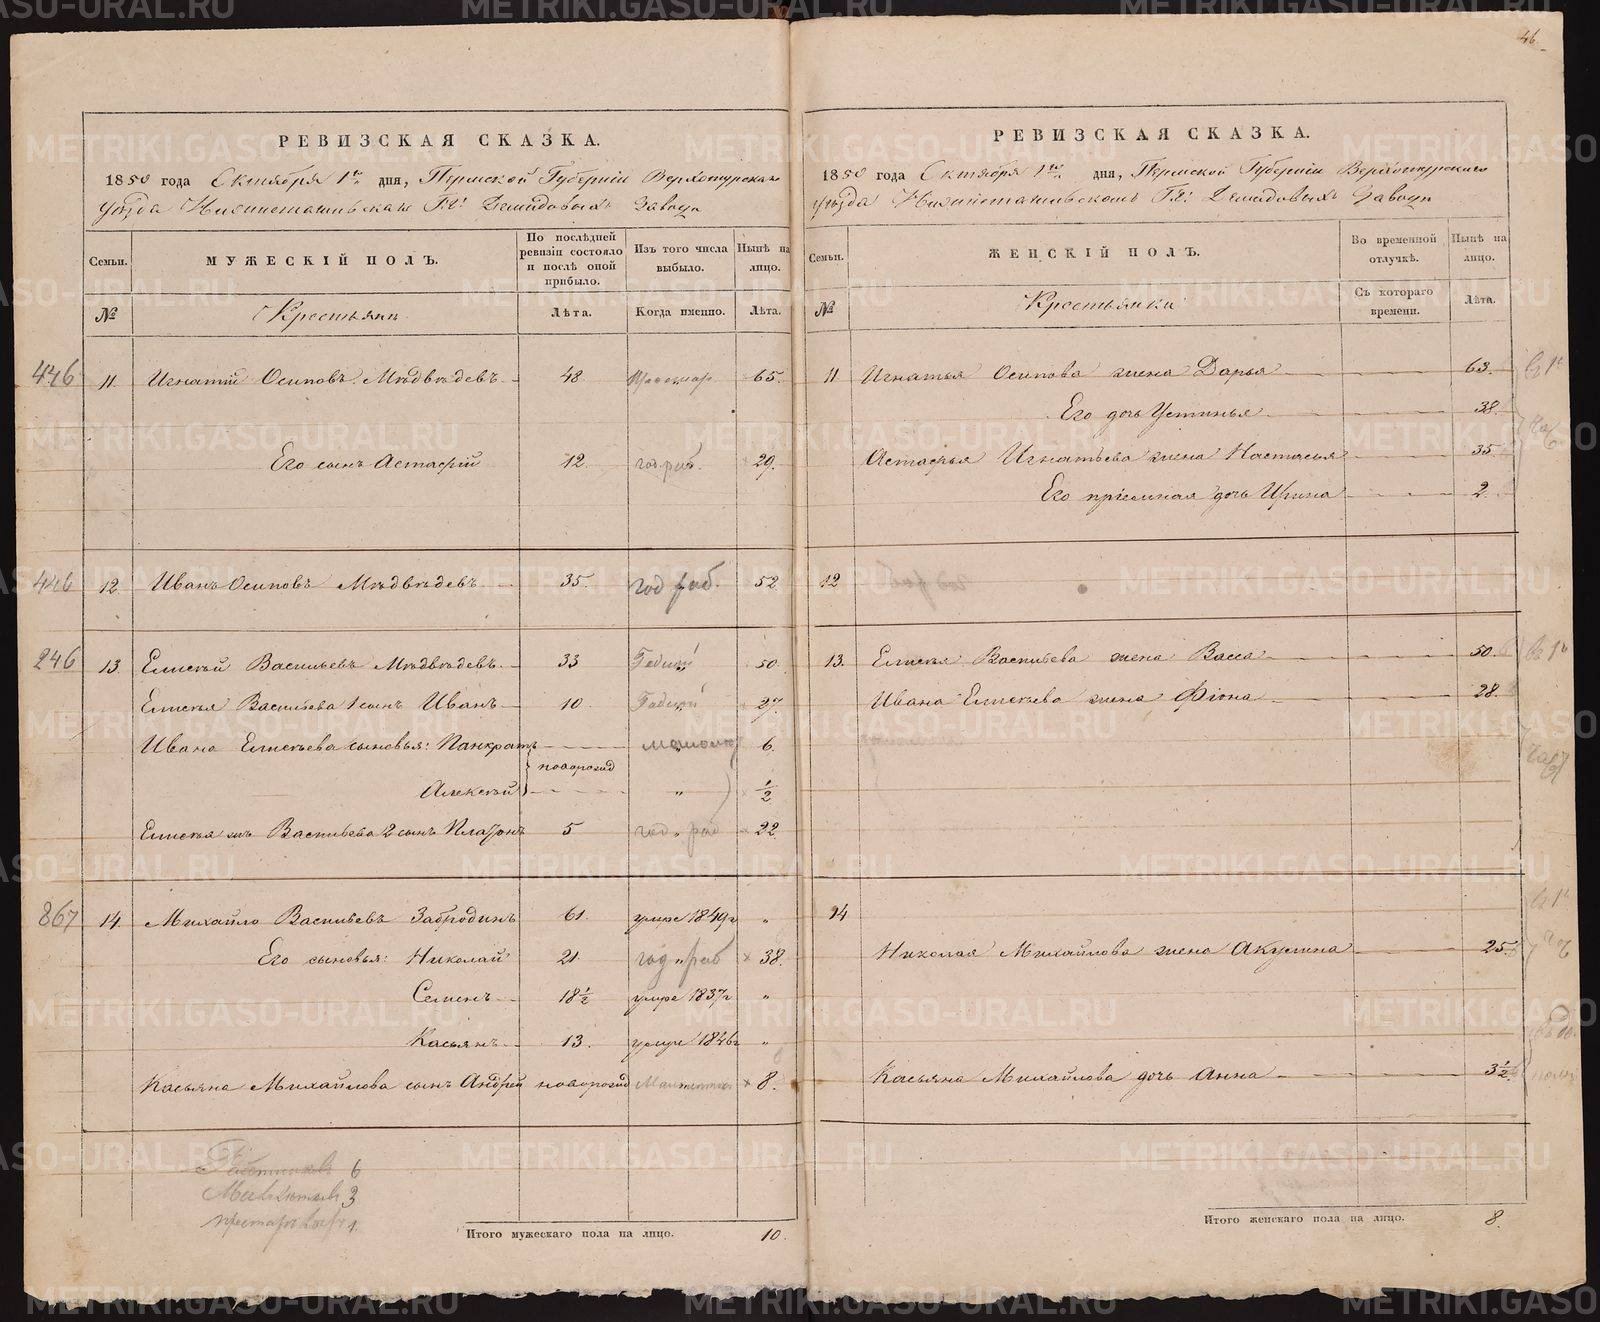 46.
РЕВИЗСКАЯ СКАЗКА.
1850 года Октября 1го дня, Пермской Губерніи Верхотурскаго
уѣзда Нижнетагильскаго Гг. Демидовыхъ Завода
Семьи. МУЖЕСКІЙ ПОЛЪ. По послѣдней ревизіи состояло и послѣ оной прибыло. Изъ того числа выбыло. Нынѣ на лицо.
№ Крестьяне Лѣта. Когда именно. Лѣта.
446 11. Игнатій Осиповъ Мѣдвѣдевъ 48 престар. 65.
Его сынъ Астафій 12. год. раб. 29.
446 12. Иванъ Осиповъ Мѣдвѣдевъ 35. год раб. 52
246 13. Елисѣй Васильевъ Мѣдвѣдевъ 33 Годный 50.
Елисѣя Васильева 1 сынъ Иванъ 10. Годный 27.
Ивана Елисѣева сыновья: Панкратъ новорожд 6.
Алексѣй „ ½
Елисѣя Васильева 2 сынъ Платонъ 5 год. раб 22
867 14. Михайло Васильевъ Забродинъ 61. умре 1849г „
Его сыновья: Николай 21 год раб × 38.
Семенъ 18½ умре 1837г „
Касьянъ 13. умре 1846г „
Касьяна Михайлова сынъ Андрей новорожд × 8.
Работниковъ 6
Малолетовъ 3
престар 1.
Итого мужескаго пола на лицо. 10.
РЕВИЗСКАЯ СКАЗКА.
1850 года Октября 1го дня, Пермской Губерніи Верхотурскаго
уѣзда Нижнетагильскомъ Гг. Демидовыхъ Заводѣ
Семьи. ЖЕНСКІЙ ПОЛЪ. Во временной отлучкѣ. Нынѣ на лицо.
№ Крестьянки Съ котораго времени. Лѣта.
11 Игнатья Осипова жена Дарья 63.
Его дочь Устинья 38.
Астафья Игнатьева жена Настасья 35
Его пріемная дочь Ирина 2.
12
13. Елисѣя Васильева жена Васса 50.
Ивана Елисѣева жена Фіона 28.
14
Николая Михайлова жена Акулина 25.
Касьяна Михайлова дочь Анна 3½.
Итого женскаго пола на лицо. 8.
METRIKI.GASO-URAL.RU